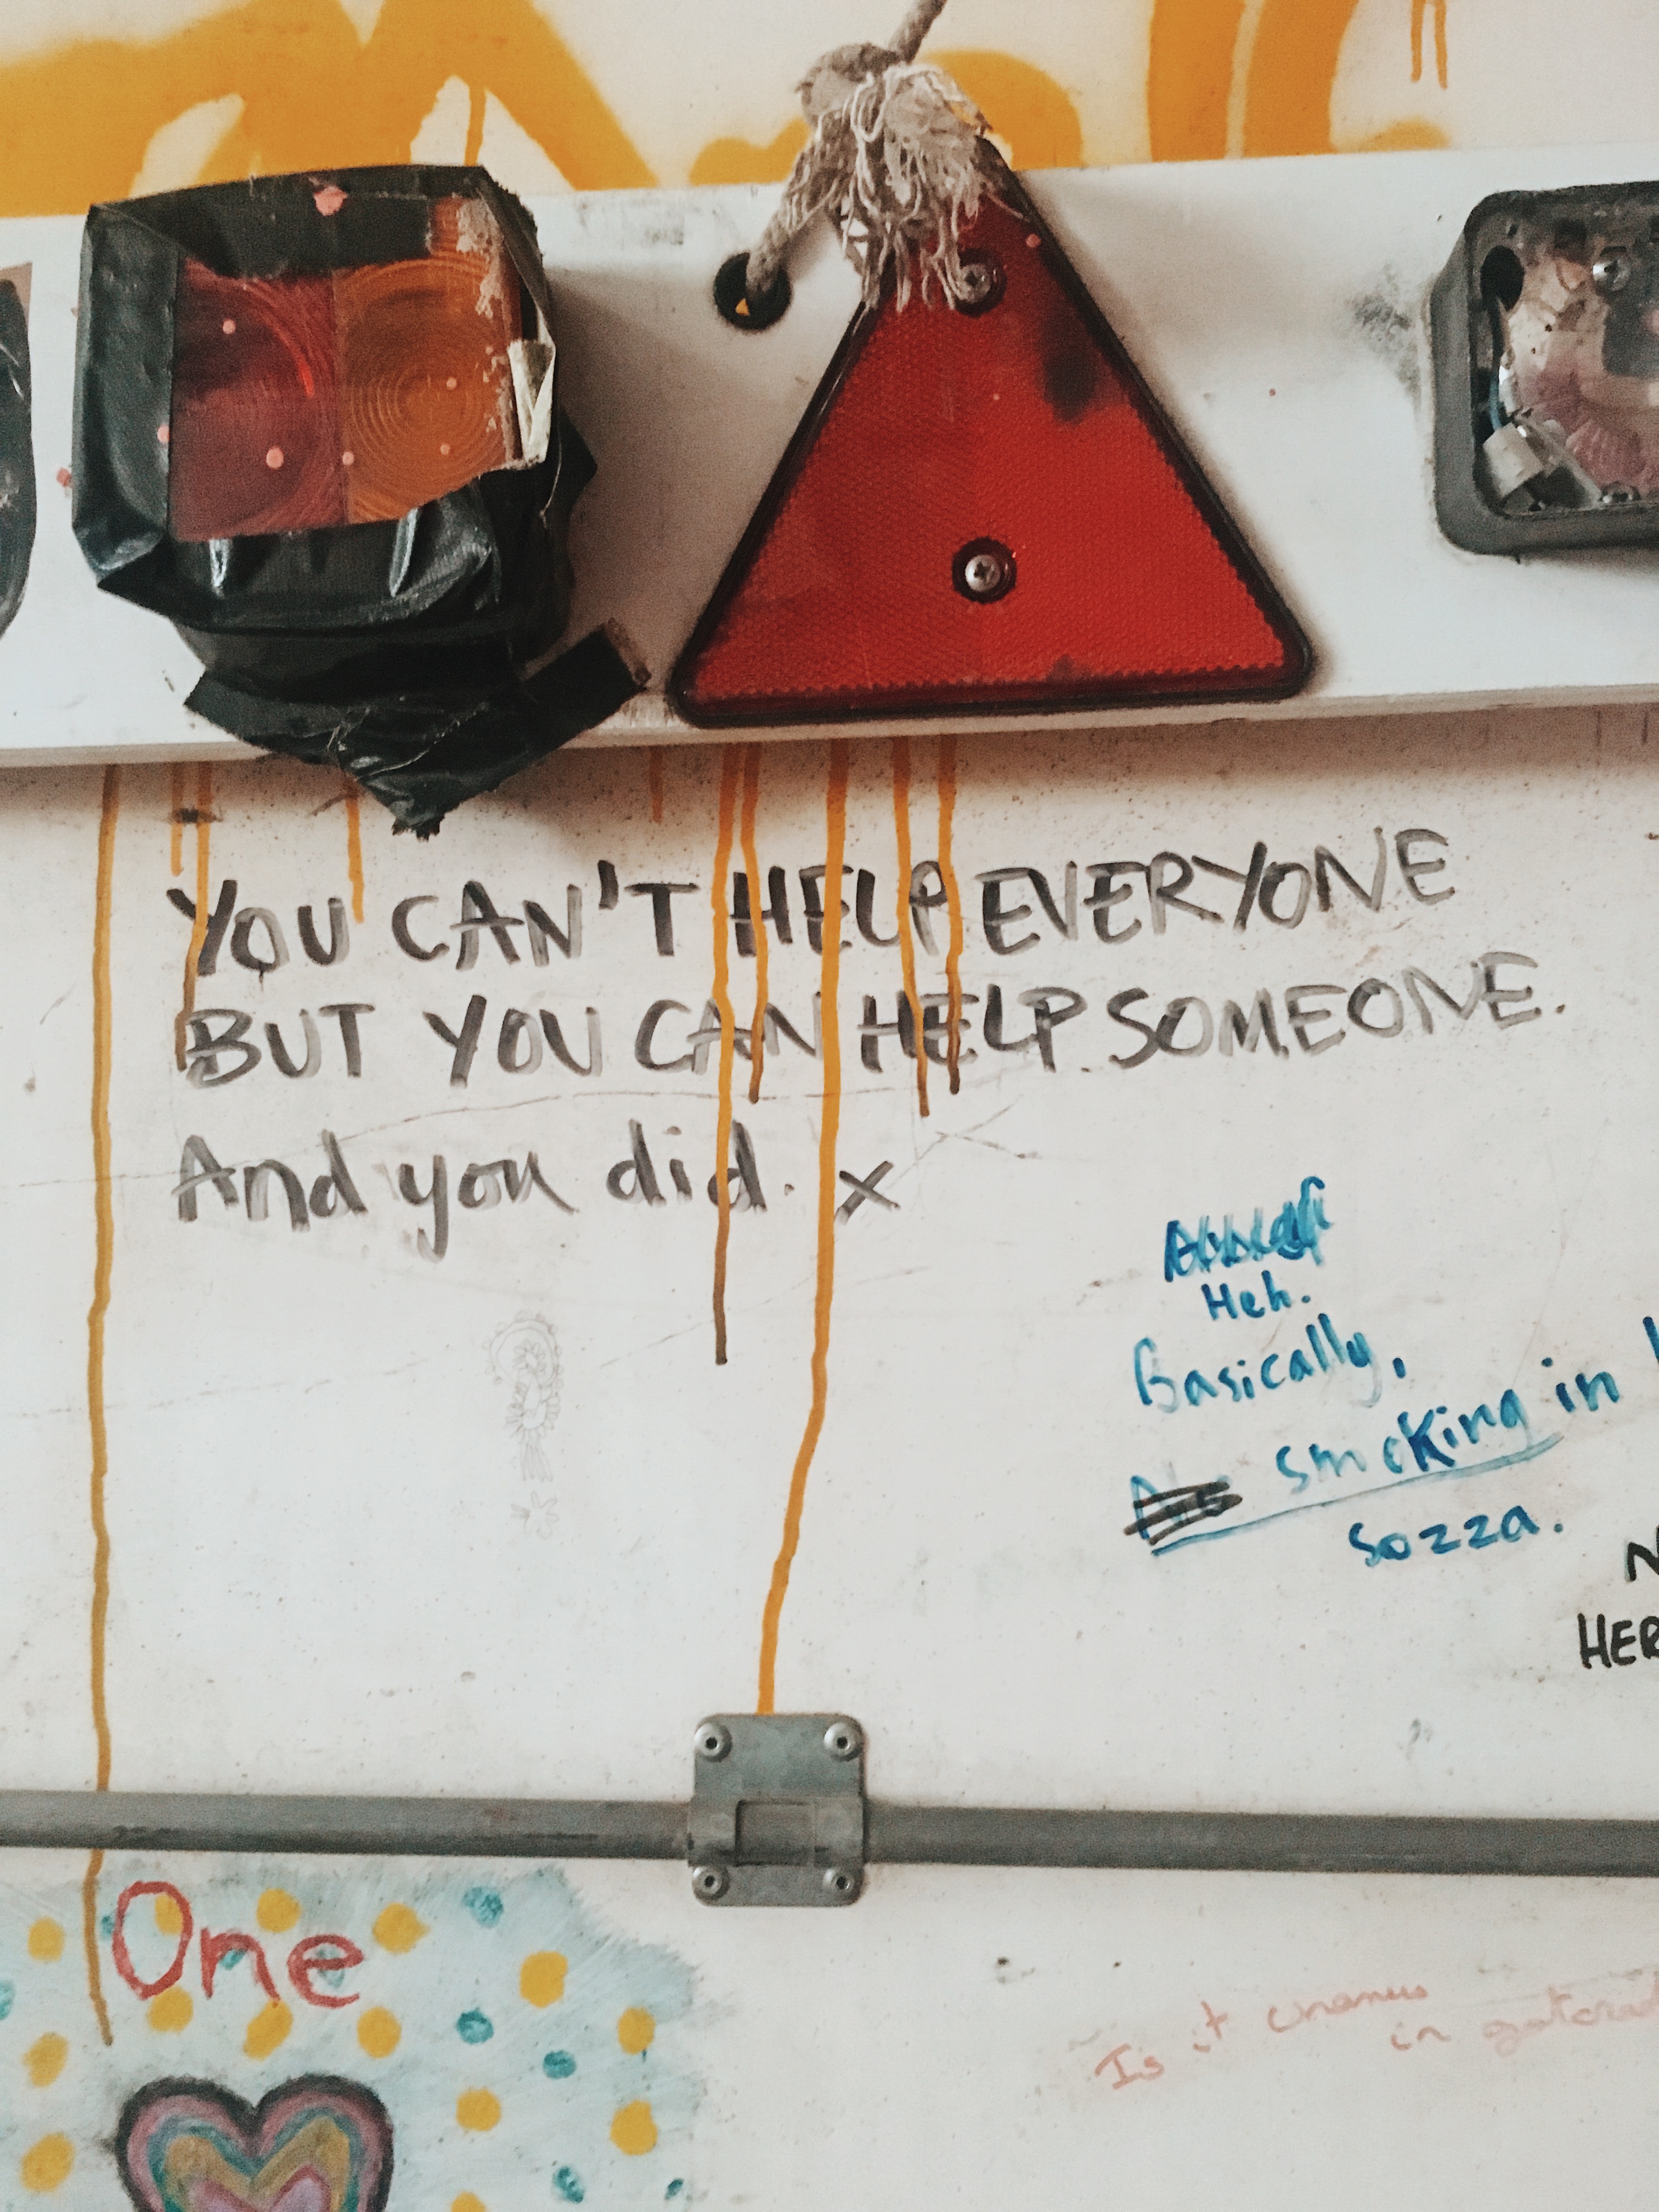 YOU CAN'T HELP EVERYONE
BUT YOU CAN HELP SOMEONE.
And you did. x
Heh.
Basically,
smoking in
sozza.
HER
One
Is it
in